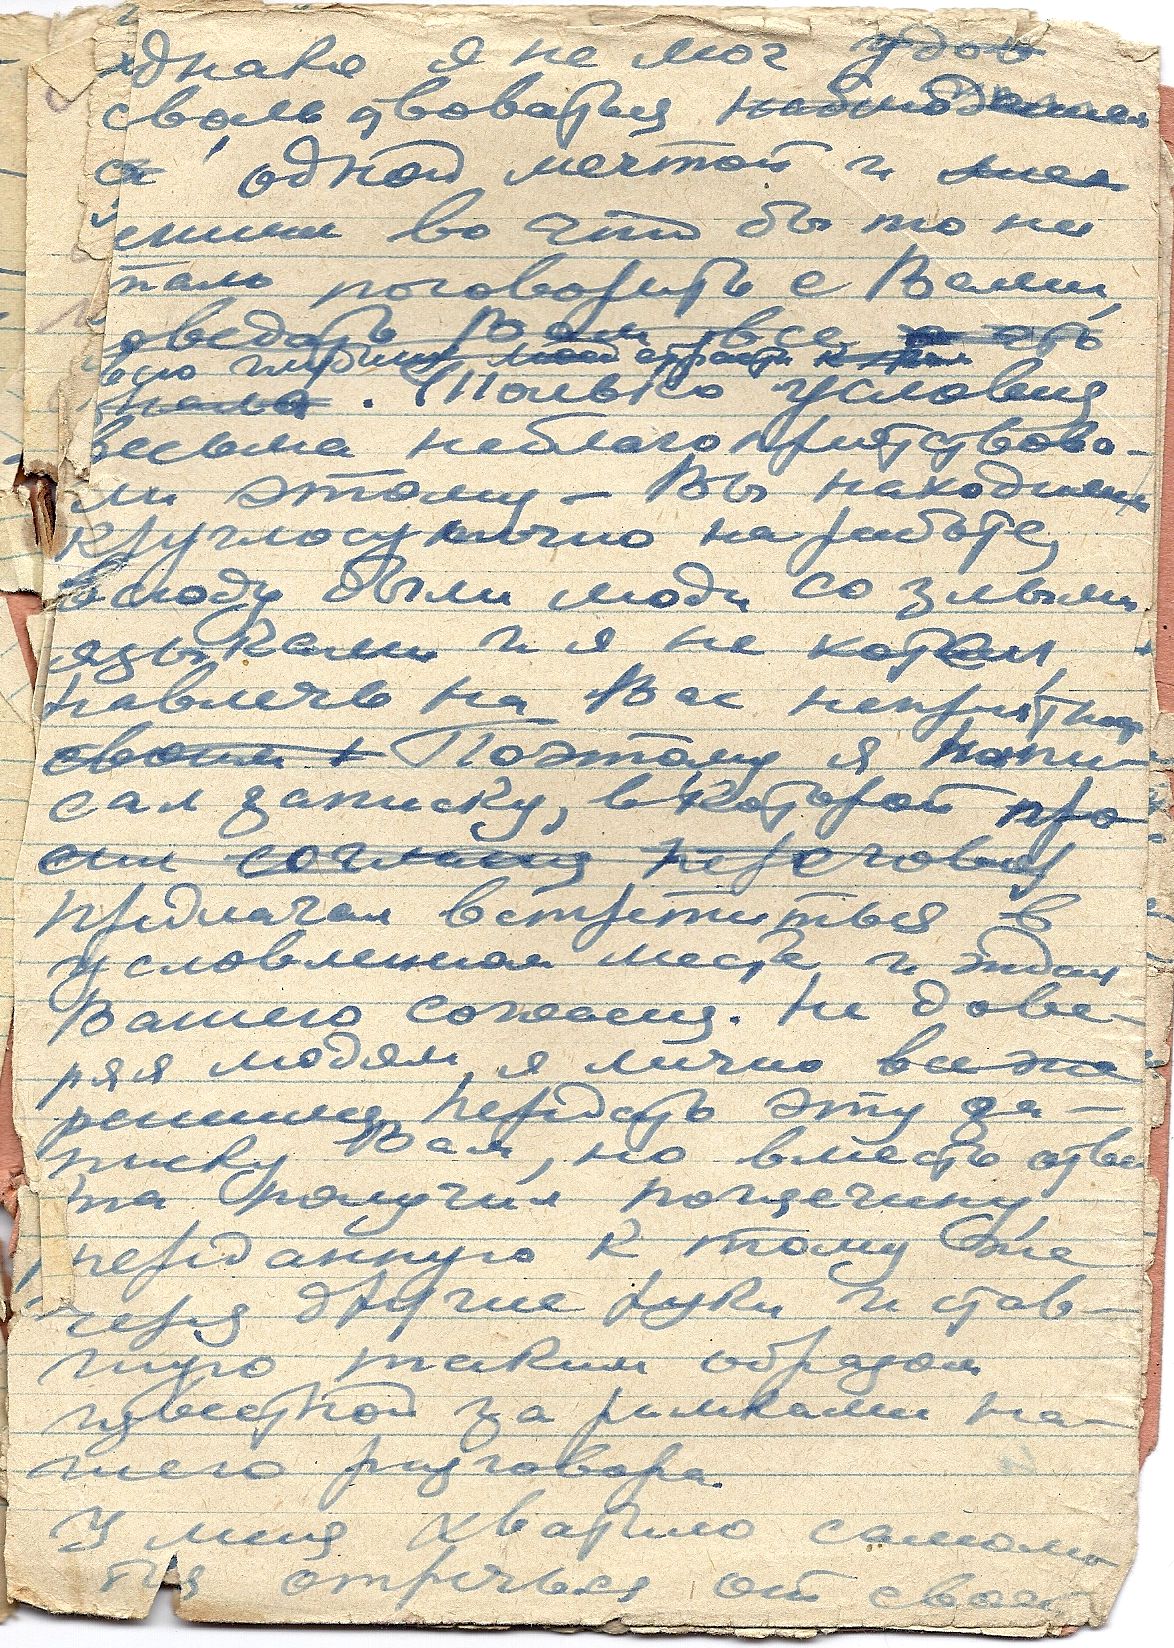 однако я не мог удов
свольствоваться наблюдением
одной мечтой и
решил во что бы то ни
стало поговорить с Вами,
поведать Вам все
всю глубину моей страсти к Вам
начала. Только условия
весьма неблагоприятствова-
ли этому — Вы находились
круглосуточно на работе,
всюду были люди со злыми
языками и я не хотел
навлечь на Вас неприятнос
Поэтому я напи-
сал записку, в которой про-
сил согласия переговор
предлагал встретиться в
условленном месте и ждал
Вашего согласия. Не дове-
ряя людям, я лично
решился передать эту за-
писку Вам, но вместо отве
та получил пощечину
переданную к тому же
через другие руки и став-
шую таким образом
известной за рамками на-
шего разговора.
У меня хватило самолю-
бия отречься от своей